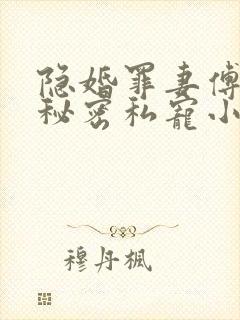 隐婚罪妻傅
秘密私宠小
穆丹枫